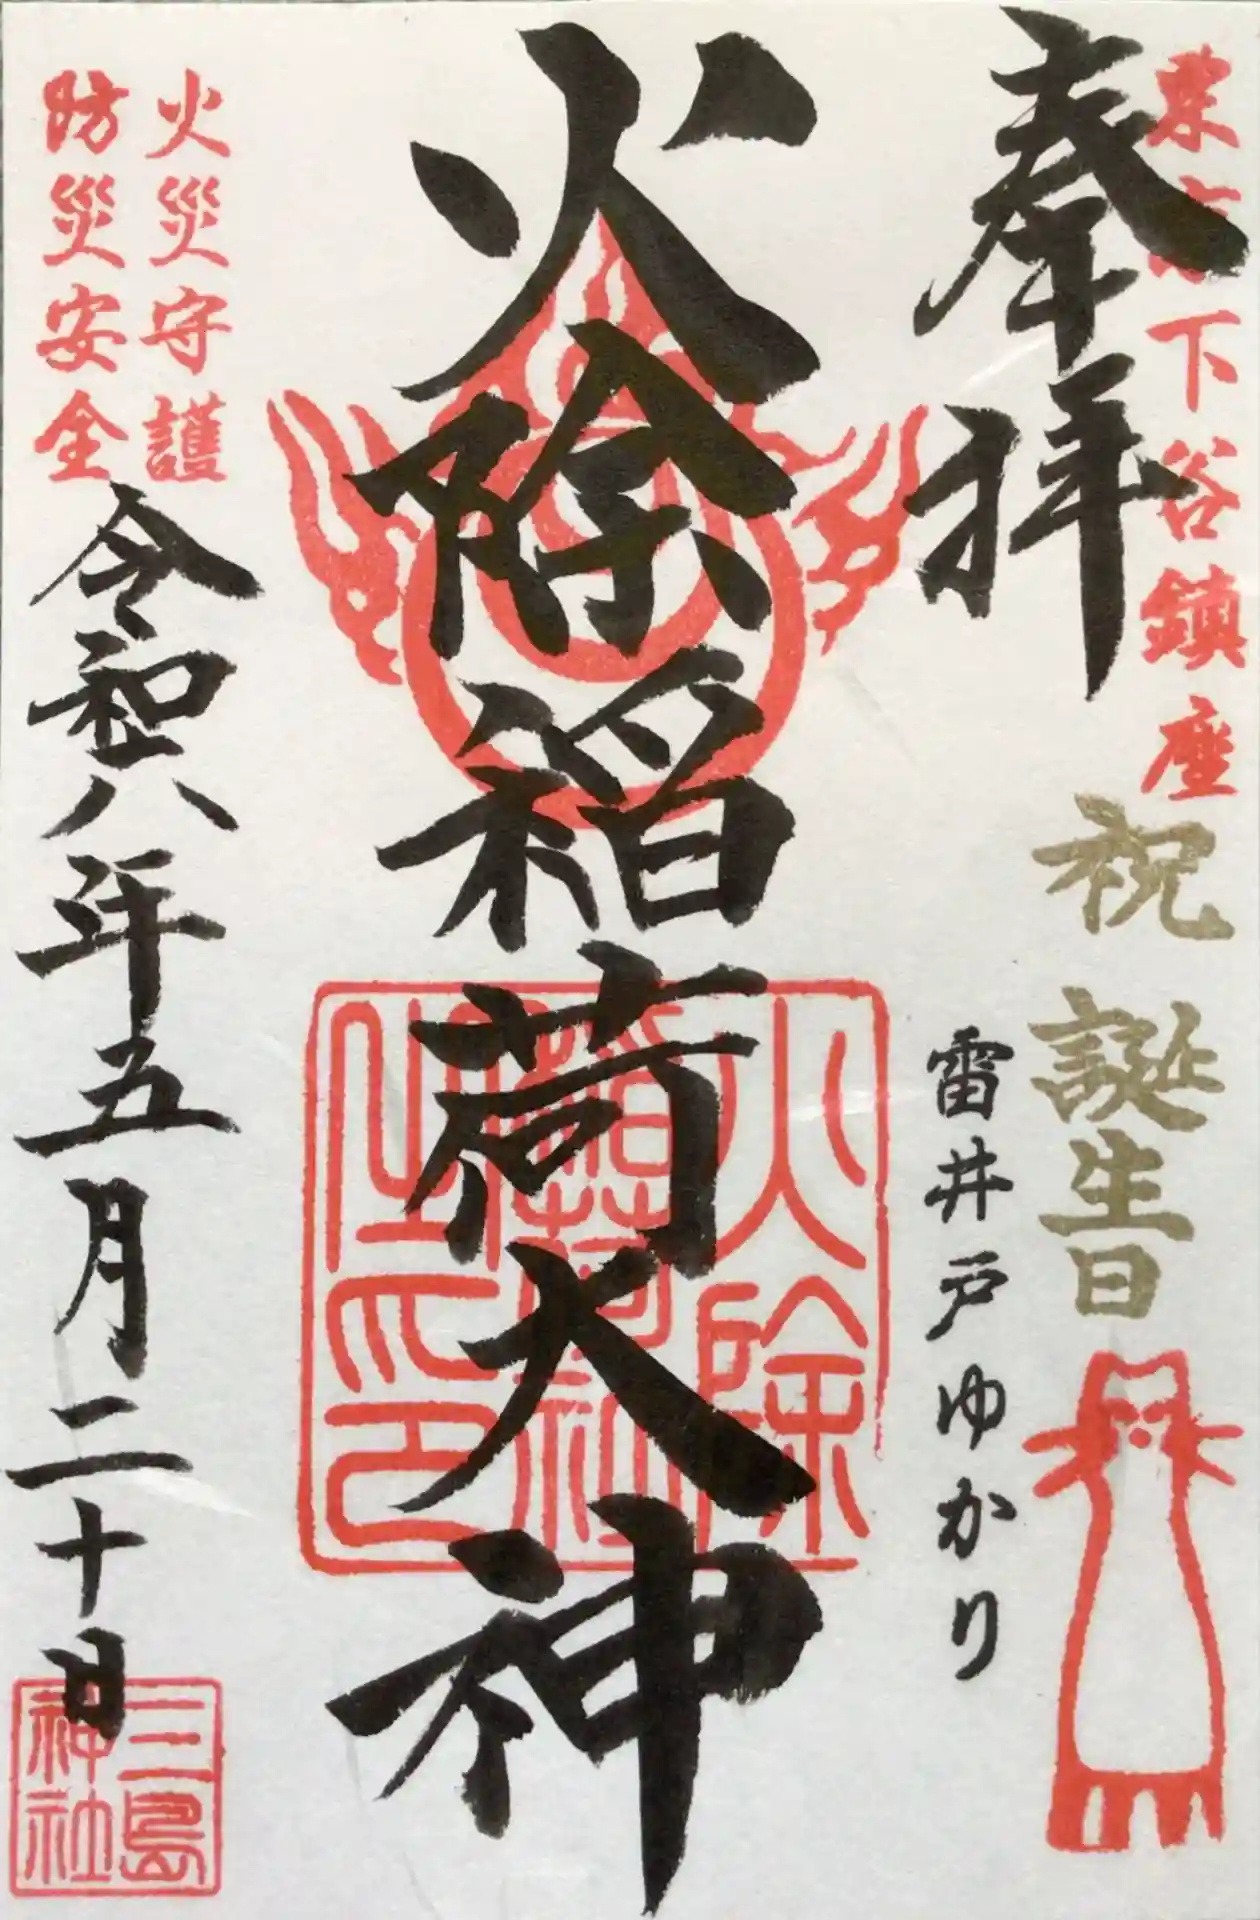 奉拝
東京下谷鎮座
祝 誕生日
雷井戸ゆかり
火除稲荷大神
火除稲荷社之印
火災守護
防災安全
令和六年五月二十日
三島神社